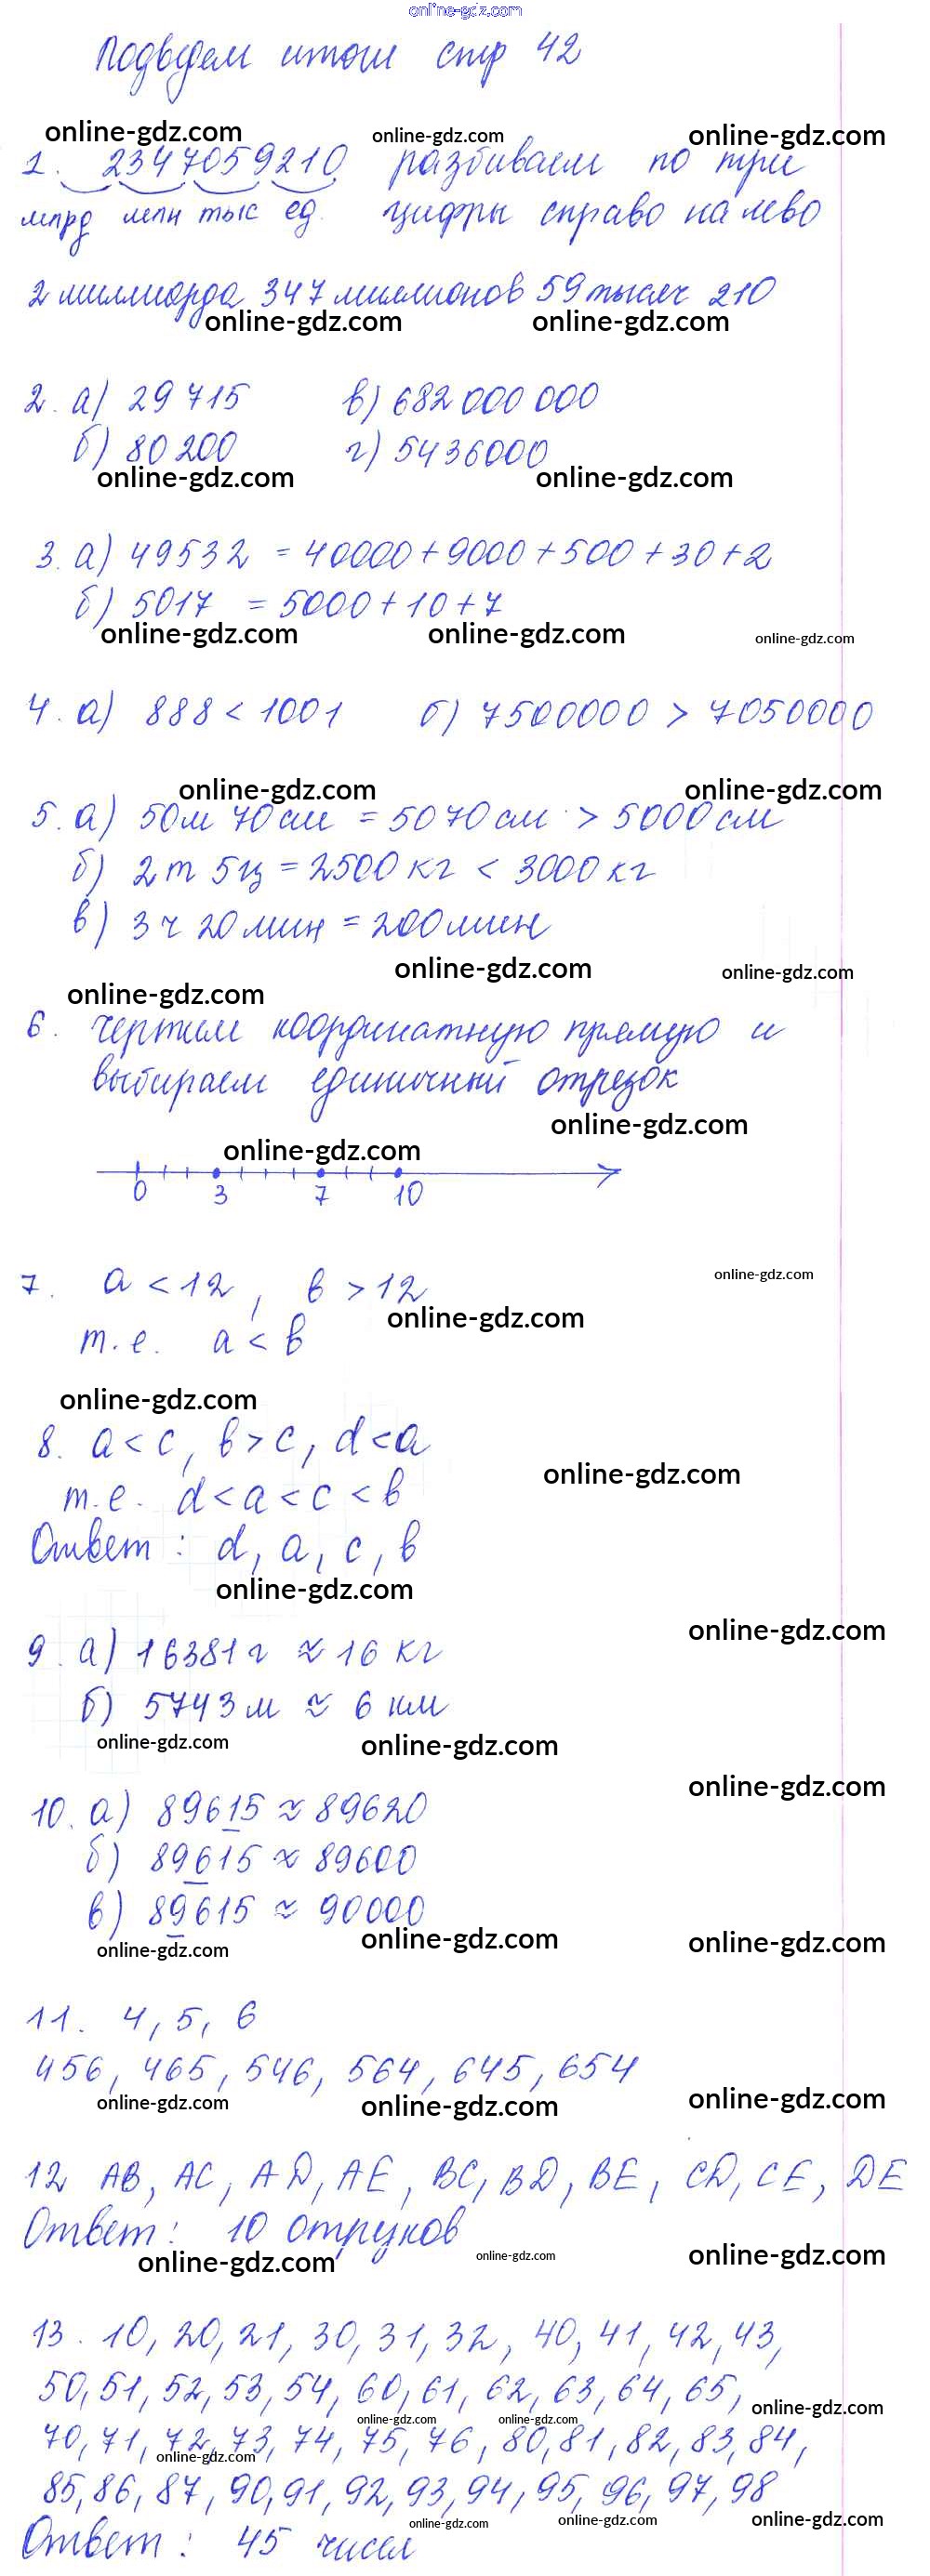 online-gdz.com
Подведем итоги стр 42
online-gdz.com online-gdz.com online-gdz.com
1. 2347059210 разбиваем по три
млрд млн тыс ед. цифры справо на лево
2 миллиарда 347 миллионов 59 тысяч 210
online-gdz.com online-gdz.com
2. а) 29 715 в) 682 000 000
б) 80 200 г) 5436000
online-gdz.com online-gdz.com
3. а) 49532 = 40000 + 9000 + 500 + 30 + 2
б) 5017 = 5000 + 10 + 7
online-gdz.com online-gdz.com online-gdz.com
4. а) 888 < 1001 б) 7500000 > 7050000
online-gdz.com online-gdz.com
5. а) 50м 70см = 5070см > 5000см
б) 2т 5ц = 2500кг < 3000кг
в) 3ч 20мин = 200мин
online-gdz.com online-gdz.com
online-gdz.com
6. Чертим координатную прямую и
выбираем единичный отрезок
online-gdz.com
online-gdz.com
0 3 7 10
online-gdz.com
7. a < 12, b > 12
online-gdz.com
т.е. a < b
online-gdz.com
8. a < c, b > c, d < a
online-gdz.com
т.е. d < a < c < b
Ответ: d, a, c, b
online-gdz.com
online-gdz.com
9. а) 16381г ≈ 16 кг
б) 5743м ≈ 6 км
online-gdz.com online-gdz.com
online-gdz.com
10. а) 89615 ≈ 89620
б) 89615 ≈ 89600
в) 89615 ≈ 90000
online-gdz.com online-gdz.com online-gdz.com
11. 4, 5, 6
456, 465, 546, 564, 645, 654
online-gdz.com online-gdz.com online-gdz.com
12 AB, AC, AD, AE, BC, BD, BE, CD, CE, DE
Ответ: 10 отрезков
online-gdz.com online-gdz.com online-gdz.com
13. 10, 20, 21, 30, 31, 32, 40, 41, 42, 43,
50, 51, 52, 53, 54, 60, 61, 62, 63, 64, 65,
online-gdz.com online-gdz.com online-gdz.com
70, 71, 72, 73, 74, 75, 76, 80, 81, 82, 83, 84,
online-gdz.com
85, 86, 87, 90, 91, 92, 93, 94, 95, 96, 97, 98
online-gdz.com online-gdz.com online-gdz.com
Ответ: 45 чисел